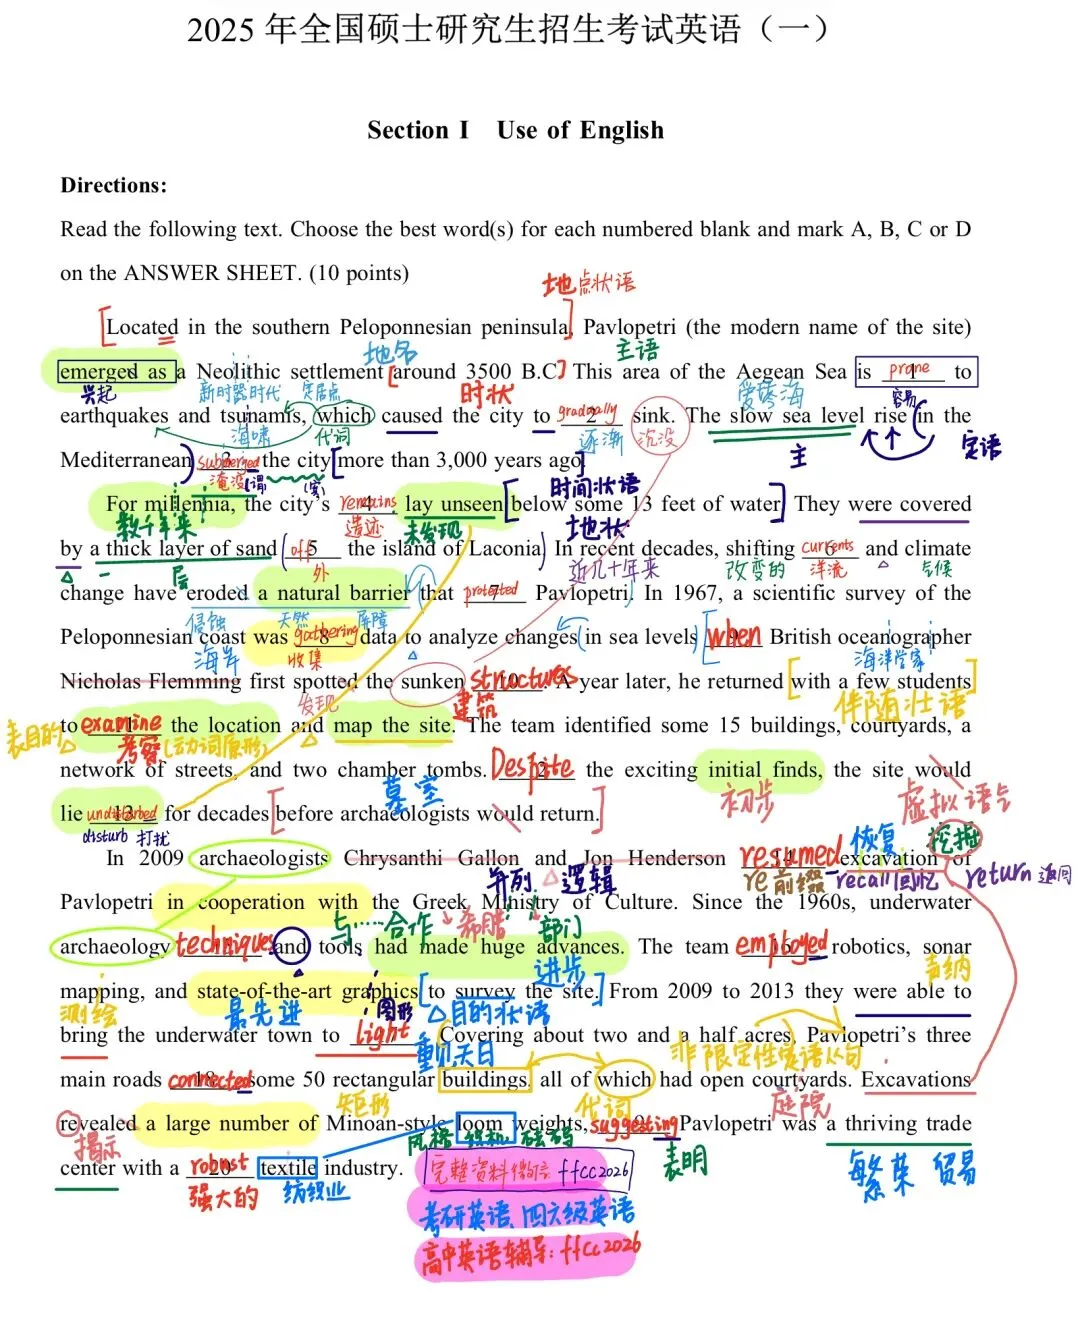 2025 年全国硕士研究生招生考试英语（一）
Section I Use of English
Directions:
Read the following text. Choose the best word(s) for each numbered blank and mark A, B, C or D
on the ANSWER SHEET. (10 points)
地点状语
[Located in the southern Peloponnesian peninsula], Pavlopetri (the modern name of the site)
地名 主语
emerged as a Neolithic settlement [around 3500 B.C.] This area of the Aegean Sea is prone 1 to
兴起 新时器时代 定居点 时状 爱琴海 容易
earthquakes and tsunamis, which caused the city to gradually 2 sink. The slow sea level rise (in the
海啸 代词 逐渐 沉没 主 定语
Mediterranean) submerged 3 the city [more than 3,000 years ago.]
淹没 (谓) (宾) 时间状语
For millennia, the city's remains 4, lay unseen [below some 13 feet of water.] They were covered
数千年来 遗迹 未发现 地状
by a thick layer of sand (off 5 the island of Laconia.) In recent decades, shifting currents 6 and climate
层 外 近几十年来 改变的 洋流 气候
change have eroded a natural barrier that protected 7 Pavlopetri. In 1967, a scientific survey of the
侵蚀 天然 屏障
Peloponnesian coast was gathering 8 data to analyze changes (in sea levels) [when 9 British oceanographer
海岸 收集 海洋学家
Nicholas Flemming first spotted the sunken structures 10. A year later, he returned [with a few students]
发现 建筑 伴随状语
to examine the location and map the site. The team identified some 15 buildings, courtyards, a
表目的 考察 (动词原形)
network of streets, and two chamber tombs. Despite 12 the exciting initial finds, the site would
墓室 初步 虚拟语气
lie undisturbed 13 for decades [before archaeologists would return.]
disturb 打扰
In 2009 archaeologists Chrysanthi Gallon and Jon Henderson resumed 14 excavation of
恢复 挖掘
并列 逻辑 re 前缀 recall 回忆 return 返回
Pavlopetri in cooperation with the Greek Ministry of Culture. Since the 1960s, underwater
与……合作 希腊 部门
archaeology techniques and tools had made huge advances. The team employed 16 robotics, sonar
进步 声纳
mapping, and state-of-the-art graphics [to survey the site.] From 2009 to 2013 they were able to
测绘 最先进 图形 目的状语
bring the underwater town to light. Covering about two and a half acres, Pavlopetri's three
重见天日 非限定性定语从句
main roads connected 18 some 50 rectangular buildings, all of which had open courtyards. Excavations
矩形 代词 庭院
revealed a large number of Minoan-style loom weights, suggesting 19 Pavlopetri was a thriving trade
揭示 风格 织机 砝码 表明
center with a robust 20 textile industry.
强大的 纺织业 繁荣 贸易
完整资料微信: ffcc2026
考研英语、四六级英语
高中英语辅导: ffcc2026